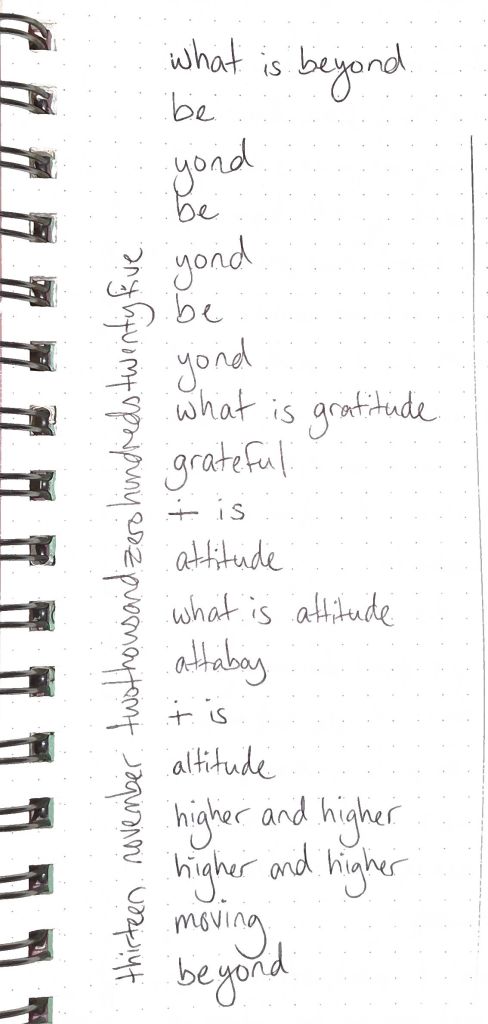 what is beyond
be
yond
be
yond
be
yond
what is gratitude
grateful
+ is
attitude
what is attitude
attaboy
+ is
altitude
higher and higher
higher and higher
moving
beyond
thirteen november twothousandzerohundredstwentyfive